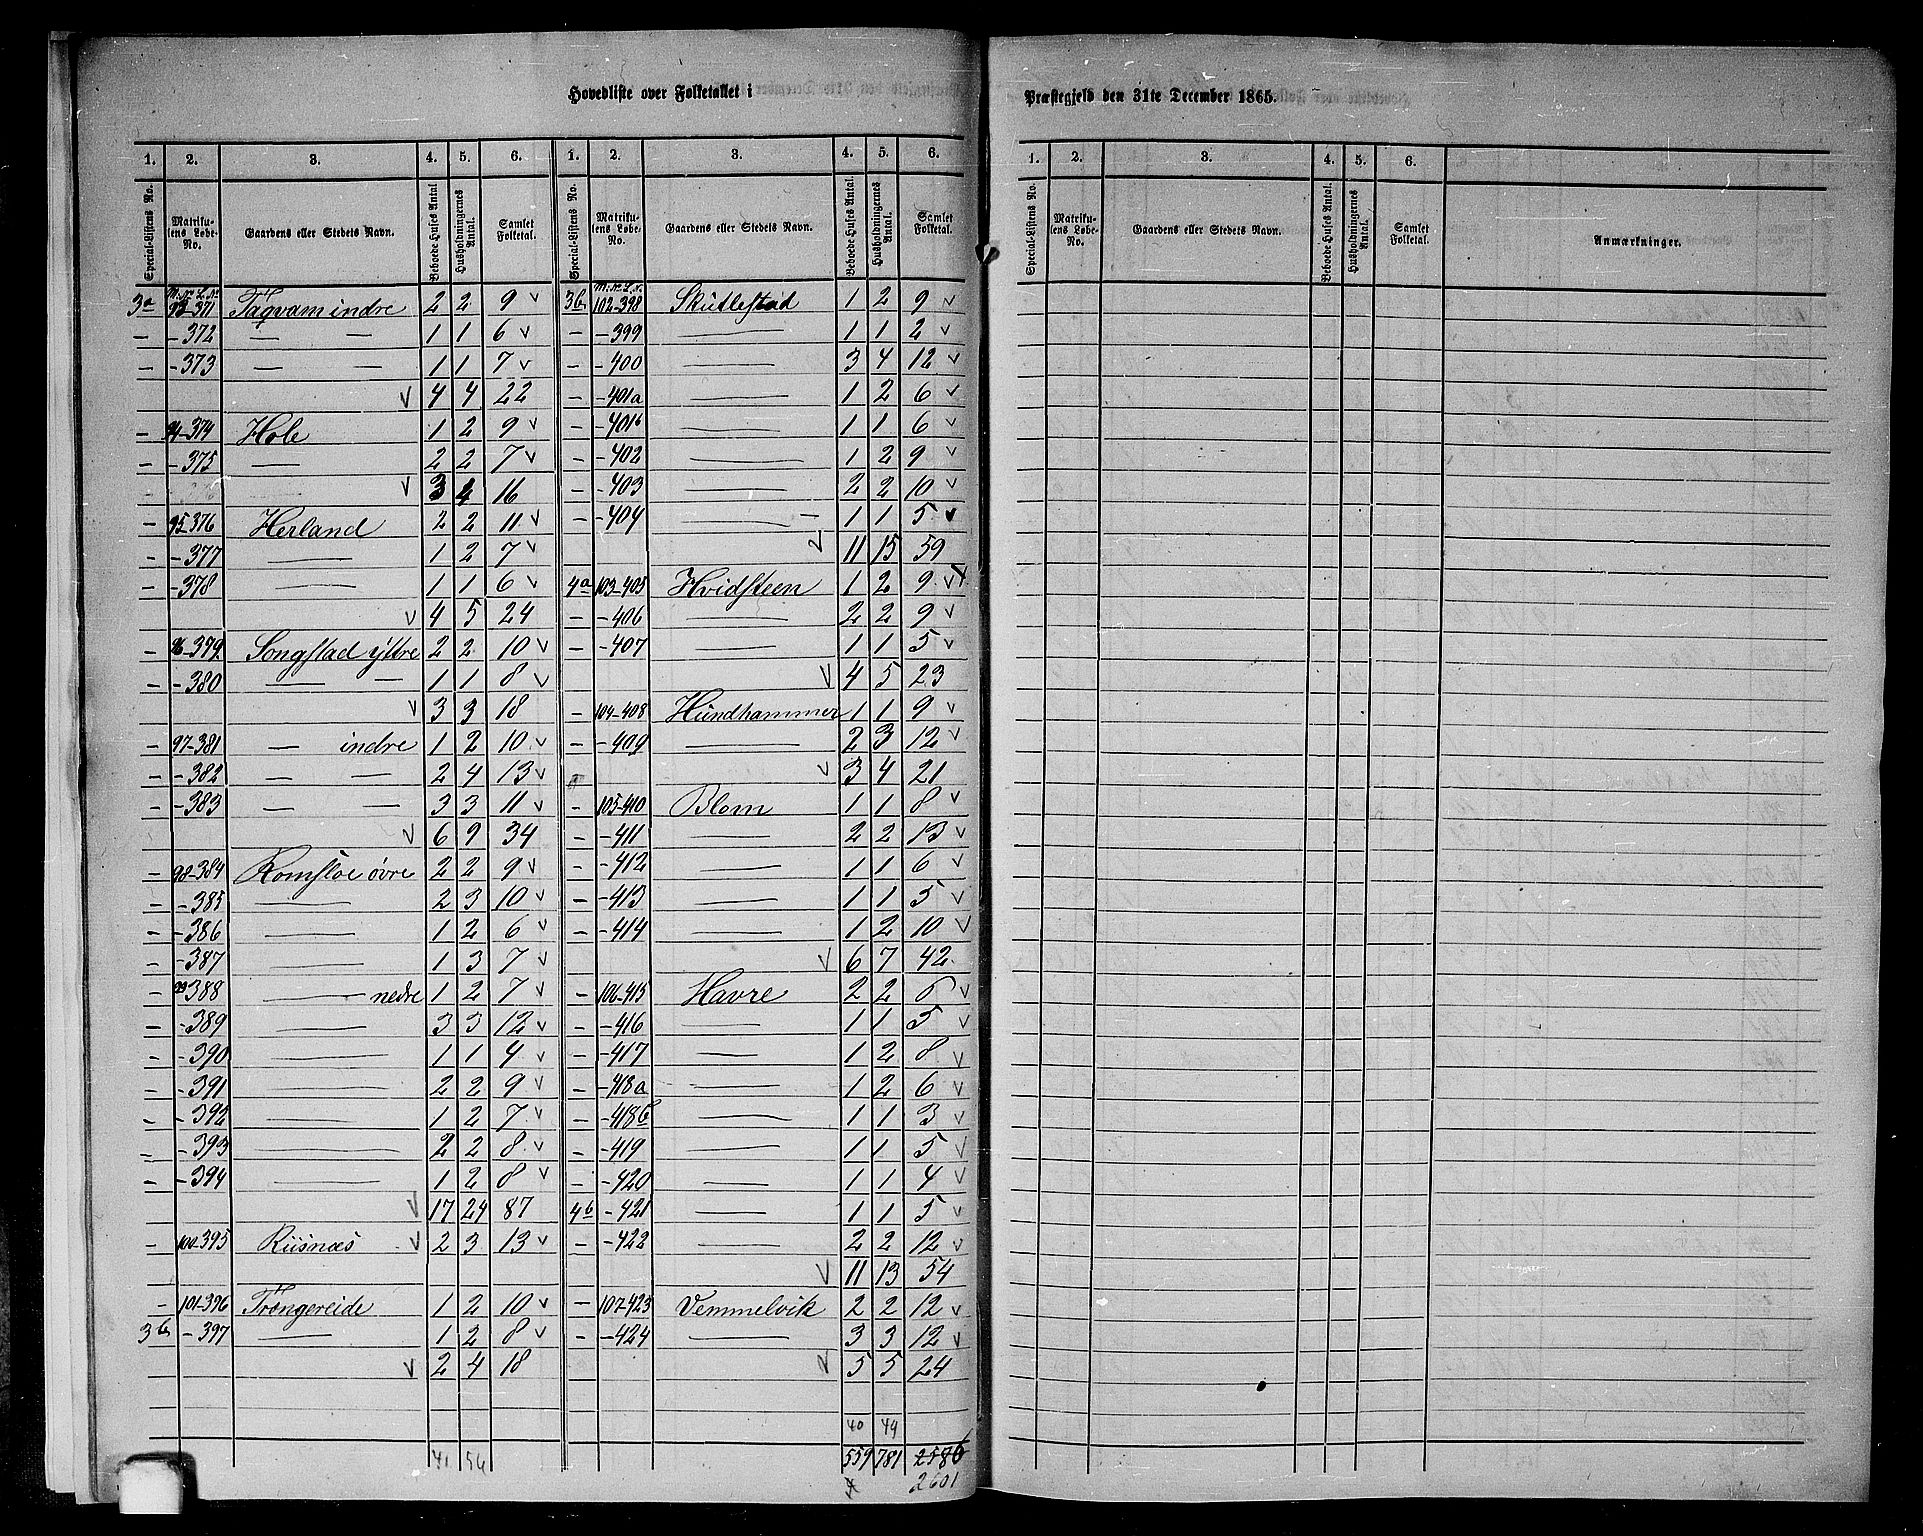 Hovedliste over Folketallet i
1. 2. 3. 4. 5. 6. 1. 2. 3. 4. 5. 6.
Special-Listens No. Matrikulens Løbe-No. Gaardens eller Stedets Navn. Beboede Huses Antal Husholdningernes Antal. Samlet Folketal. Special-Listens No. Matrikulens Løbe-No. Gaardens eller Stedets Navn. Beboede Huses Antal. Husholdningernes Antal. Samlet Folketal.
M.Nr. L.Nr.
3a 93-371 Taqvam indre 2 2 9 v
— -372 — — 1 1 6 v
— -373 — — 1 1 7 v
v 4 4 22
— 94-374 Hole 1 2 9 v
— -375 — 2 2 7 v
v 3 4 16
— 95-376 Herland 2 2 11 v
— -377 — 1 2 7 v
— -378 — 1 1 6 v
v 4 5 24
— 96-379 Songstad ÿttre 2 2 10 v
— -380 — — 1 1 8 v
v 3 3 18
— 97-381 — indre 1 2 10 v
— -382 — — 2 4 13 v
— -383 — — 3 3 11 v
v 6 9 34
— 98-384 Romsloe øvre 2 2 9 v
— -385 — 2 3 10 v
— -386 — 1 2 6 v
— -387 — 1 3 7 v
— 99-388 — nedre 1 2 7 v
— -389 — 3 3 12 v
— -390 — 1 1 4 v
— -391 — 2 2 9 v
— -392 — 1 2 7 v
— -393 — 2 2 8 v
— -394 — 1 2 8 v
v 17 24 87
— 100-395 Riisnæs v 2 3 13 v
— 101-396 Trøngereide 1 2 10 v
3b -397 — 1 2 8 v
v 2 4 18
41 56
M.Nr. L.Nr.
3b 102-398 Skutlestad 1 2 9 v
— -399 — 1 1 2 v
— -400 — 3 4 12 v
— -401a — 1 2 6 v
— -401b — 1 1 6 v
— -402 — 1 2 9 v
— -403 — 2 2 10 v
— -404 — 1 1 5 v
v 11 15 59
4a 103-405 Hvidsteen 1 2 9 v
— -406 — 2 2 9 v
— -407 — 1 1 5 v
v 4 5 23
— 104-408 Hundhammer 1 1 9 v
— -409 — 2 3 12 v
v 3 4 21
— 105-410 Blom 1 1 8 v
— -411 — 2 2 13 v
— -412 — 1 1 6 v
— -413 — 1 1 5 v
— -414 — 1 2 10 v
v 6 7 42
— 106-415 Havre 2 2 6 v
— -416 — 1 1 5 v
— -417 — 1 2 8 v
— -418a — 1 2 6 v
— -418b — 1 1 3 v
— -419 — 1 1 5 v
— -420 — 1 1 4 v
4b -421 — 1 1 5 v
— -422 — 2 2 12 v
v 11 13 54
— 107-423 Vemmelvik 2 2 12 v
— -424 — 3 3 12 v
v 5 5 24
40 49
559 781 2586
2601
Præstegjeld den 31te December 1865.
1. 2. 3. 4. 5. 6.
Special-Listens No. Matrikulens Løbe-No. Gaardens eller Stedets Navn. Beboede Huses Antal. Husholdningernes Antal. Samlet Folketal. Anmærkninger.